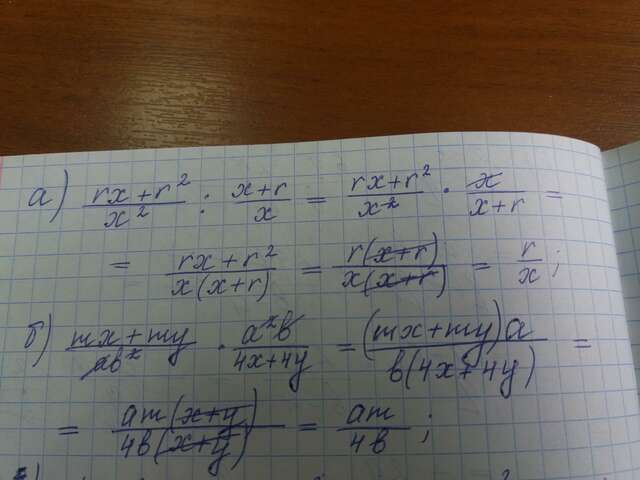 а) (rx + r²)/x² : (x + r)/x = (rx + r²)/x² · x/(x + r) =
= (rx + r²)/(x(x + r)) = r(x + r)/(x(x + r)) = r/x ;
б) (mx + my)/(ab²) · (a²b)/(4x + 4y) = ((mx + my)a)/(b(4x + 4y)) =
= (am(x + y))/(4b(x + y)) = am/(4b) ;